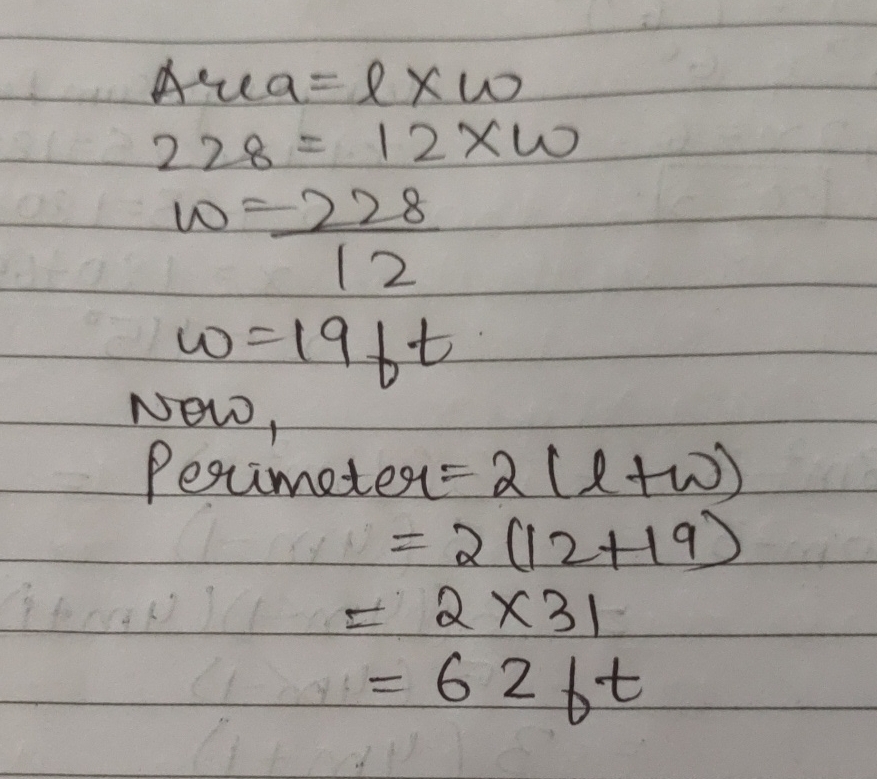 Area = l × w
228 = 12 × w
w = 228
12
w = 19 ft
Now,
Perimeter = 2 (l + w)
= 2 (12 + 19)
= 2 × 31
= 62 ft